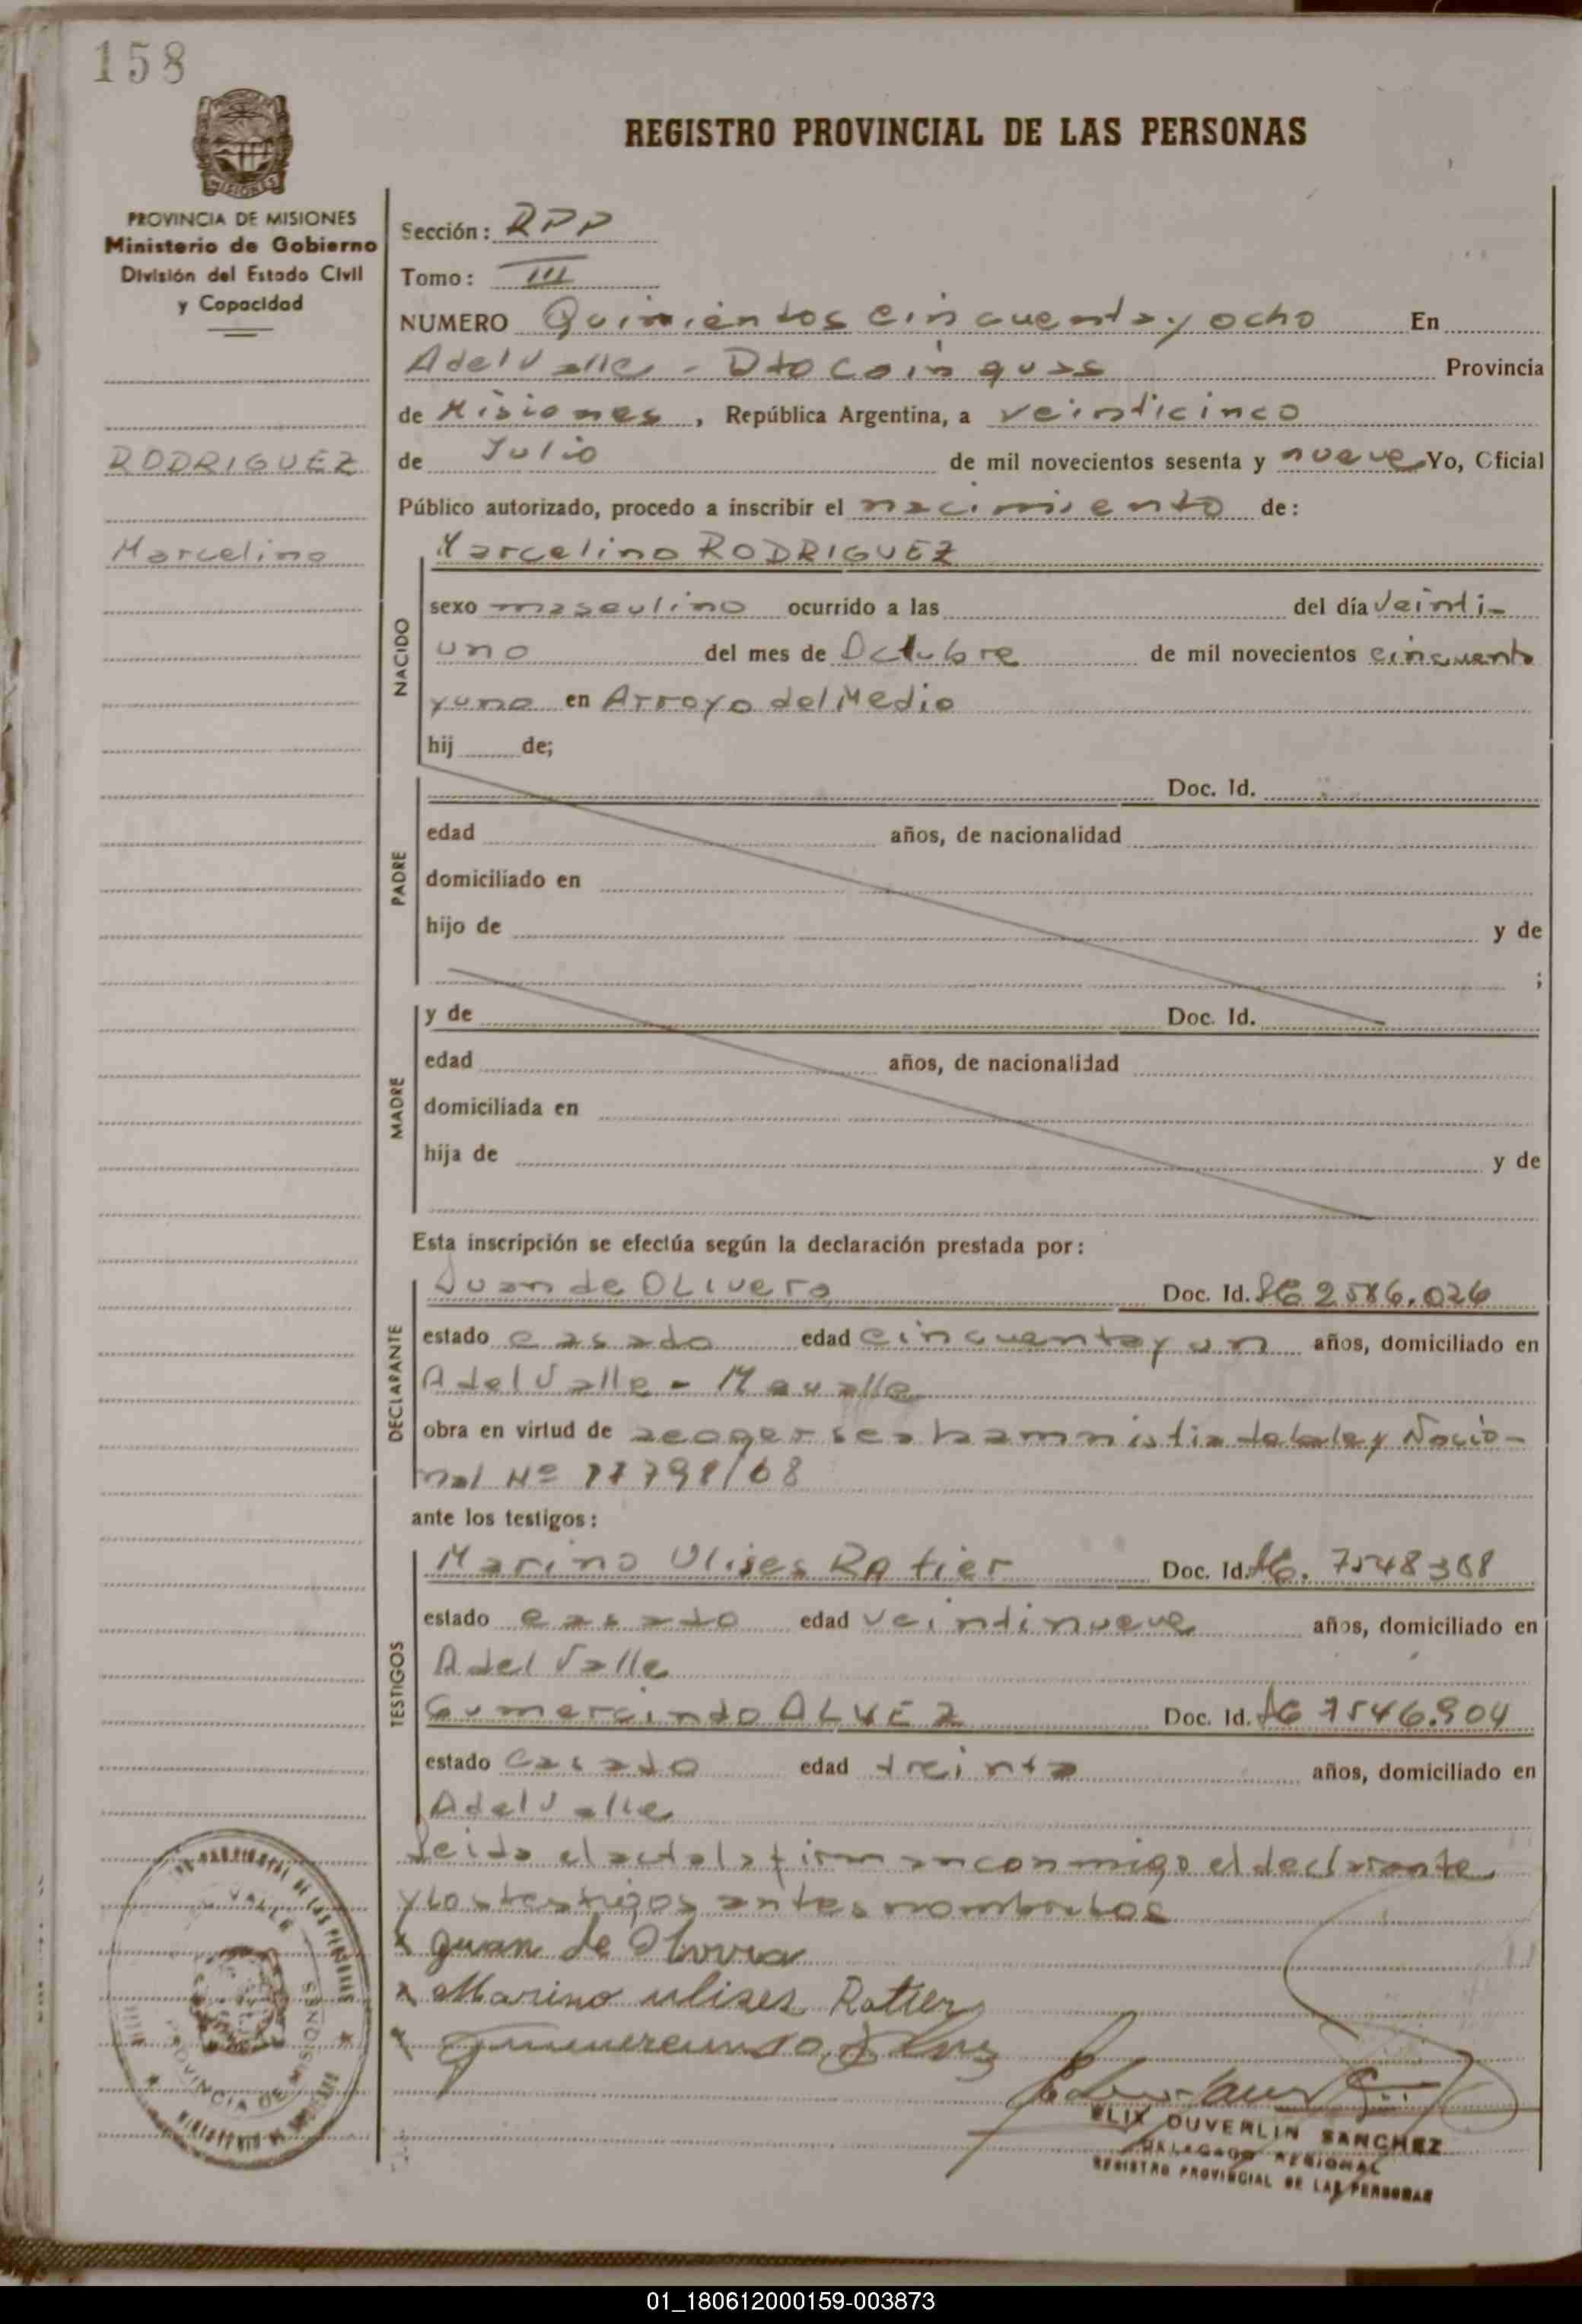 158
REGISTRO PROVINCIAL DE LAS PERSONAS
PROVINCIA DE MISIONES
Ministerio de Gobierno
División del Estado Civil
y Capacidad
RODRIGUEZ
Marcelino
Sección: RPP
Tomo: III
NUMERO Quinientos cincuenta y ocho En
Adel Valle - Dto Cainguas Provincia
de Misiones, República Argentina, a veinticinco
de Julio de mil novecientos sesenta y nueve Yo, Oficial
Público autorizado, procedo a inscribir el nacimiento de:
NACIDO
Marcelino RODRIGUEZ
sexo masculino ocurrido a las del día veinti-
uno del mes de Octubre de mil novecientos cincuenta
y uno en Arroyo del Medio
hij de;
PADRE
Doc. Id.
edad años, de nacionalidad
domiciliado en
hijo de y de
;
MADRE
y de Doc. Id.
edad años, de nacionalidad
domiciliada en
hija de y de
Esta inscripción se efectúa según la declaración prestada por:
DECLARANTE
Juan de OLivera Doc. Id. 2586.026
estado casado edad cincuenta y un años, domiciliado en
Adel Valle -
obra en virtud de acogerse a la amnistia de la ley Nacio-
nal Nº 17798/68
ante los testigos:
TESTIGOS
Marino Ulises RAtier Doc. Id. 7548368
estado casado edad veintinueve años, domiciliado en
Adel Valle
Gumercindo ALVEZ Doc. Id. 7546.904
estado casado edad treinta años, domiciliado en
Adel Valle
Leida el acta la firman conmigo el declarante
y los testigos antes nombrados
x Juan de Olivera
x Marino ulises Ratier
x Gumercindo Alvez
PROVINCIA DE MISIONES
ELIX OUVERLIN SANCHEZ
DELEGADO REGIONAL
REGISTRO PROVINCIAL DE LAS PERSONAS
01_180612000159-003873